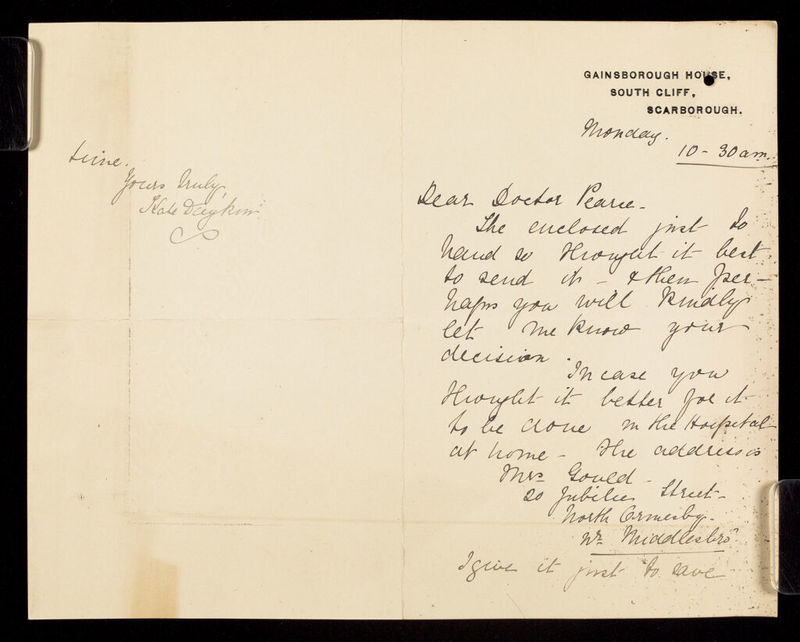 GAINSBOROUGH HOUSE,
SOUTH CLIFF,
SCARBOROUGH.
Monday.
10-30 am.
Dear Doctor Pearce -
The enclosed just to
hand so thought it best
to send it - & then per-
haps you will kindly
let me know your
decision.
In case you
thought it better for it
to be done in the Hospital
at home - the address is
Mrs Gould -
20 Jubilee Street -
North Ormesby -
Nr. Middlesbro'
I give it just to save
time.
Yours truly,
Kate